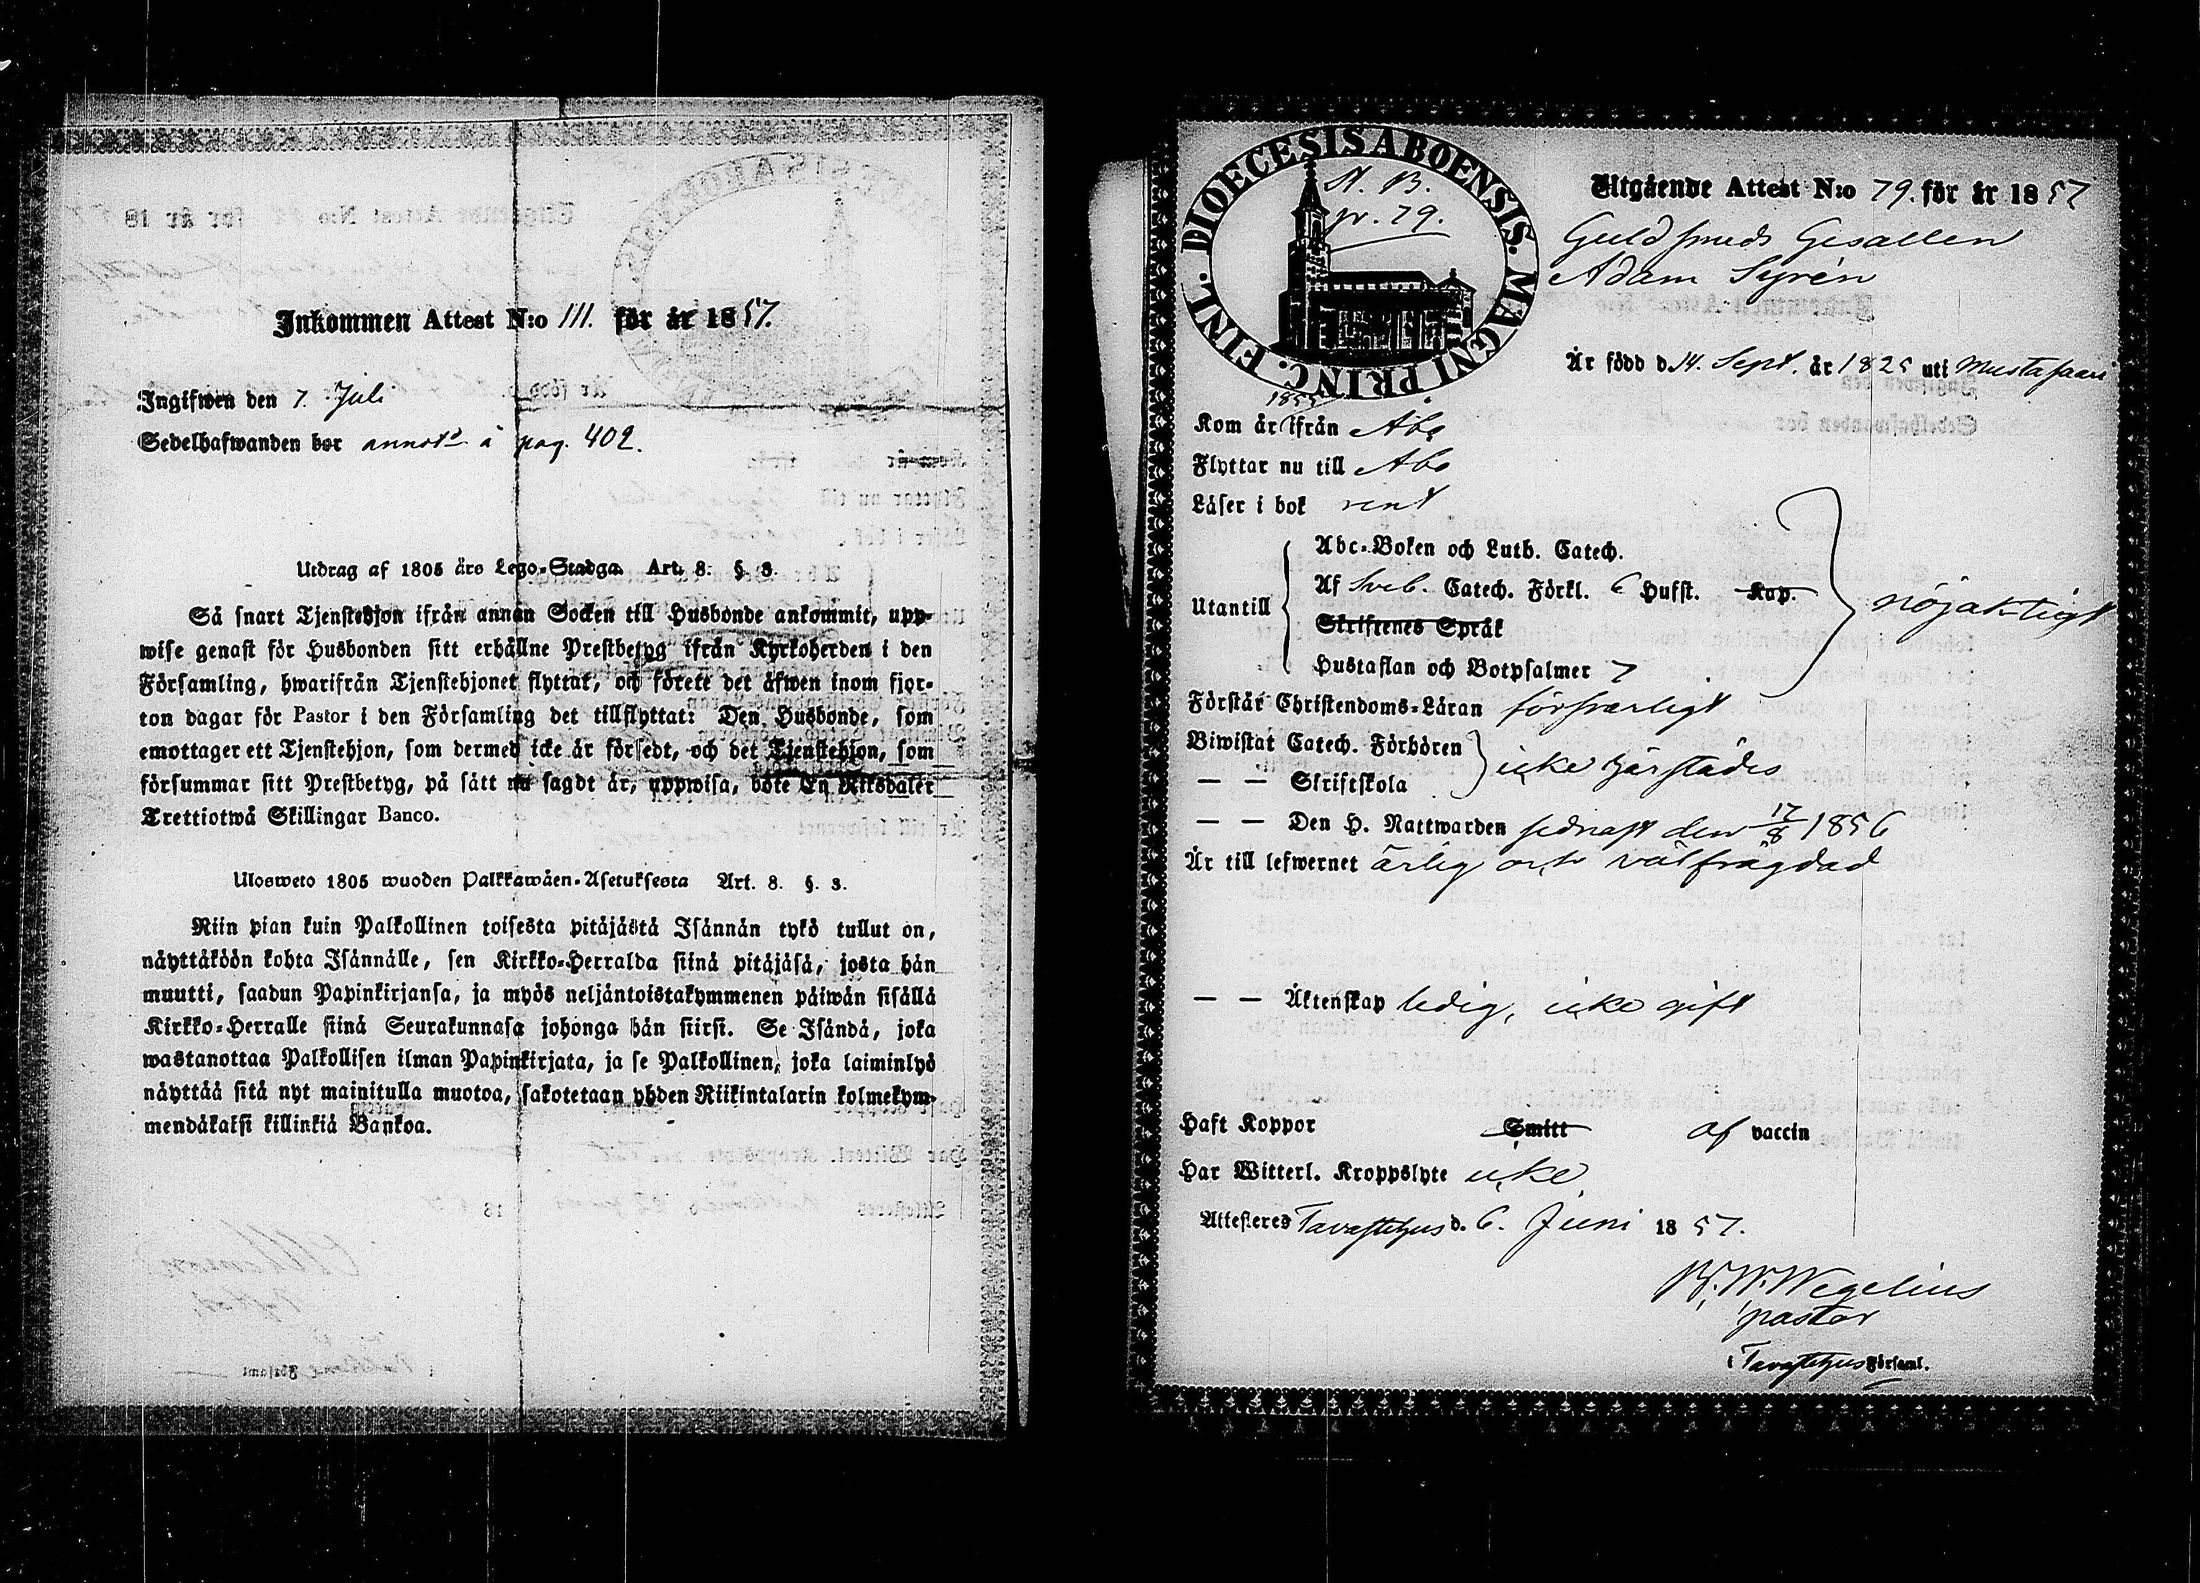 Inkommen Attest N:o 111. för år 1857.
Ingifwen den 7. Juli
Sedelhafwanden bor annot? å pag. 402.
Utdrag af 1805 års Lego-Stadga Art. 8. §. 3.
Så snart Tjenstehjon ifrån annan Socken till Husbonde ankommit, upp-
wise genast för Husbonden sitt erhållne Prestbetyg ifrån Kyrkoherden i den
Församling, hwarifrån Tjenstehjonet flyttat, och förete det äfwen inom fjor-
ton dagar för Pastor i den Församling det tillflyttat: Den Husbonde, som
emottager ett Tjenstehjon, som dermed icke är försedt, och det Tjenstehjon, som
försummar sitt Prestbetyg, på sätt nu sagdt är, uppwisa, böte En Riksdaler
Trettiotwå Skillingar Banco.
Ulosweto 1805 wuoden Palkkawäen-Asetuksesta Art. 8. §. 3.
Niin pian kuin Palkollinen toisesta pitäjästä Isännän tykö tullut on,
näyttäköön kohta Isännälle, sen Kirkko-Herralda siinä pitäjäsä, josta hän
muutti, saadun Papinkirjansa, ja myös neljäntoistakymmenen päiwän sisällä
Kirkko-Herralle siinä Seurakunnasa johonga hän siirsi. Se Isändä, joka
wastanottaa Palkollisen ilman Papinkirjata, ja se Palkollinen, joka laiminlyö
näyttää sitä nyt mainitulla muotoa, sakotetaan yhden Riikintalarin kolmekym-
mendäkaksi killinkiä Bankoa.
DIOECESIS ABOENSIS. MAGNI PRINC. FINL.
N. B.
pr. 79.
Utgående Attest N:o 79. för år 1857
Guldsmeds Gesällen
Adam Syrén
Är född d. 14. Sept. år 1825 uti Mustasaari
1855
Kom år ifrån Åbo
Flyttar nu till Åbo
Läser i bok rent
Abc-Boken och Luth. Catech.
Utantill Af Sveb. Catech. Förkl. 6 Hufst. Kap. nöjaktigt
Skriftenes Språk
Hustaflan och Botpsalmer 7
Förstår Christendoms-Läran försvarligt
Biwistat Catech. Förhören
— — Skriftskola icke härstädes
— — Den H. Nattwarden sednast den 17/8 1856
Är till lefwernet ärlig och välfrägdad
— — Äktenskap ledig, icke gift
Haft Koppor Smitt af vaccin
Har Witterl. Kroppslyte icke
Attesteres Tavastehus d. 6. Juni 1857.
Wegelius
pastor
i Tavastehus Församl.